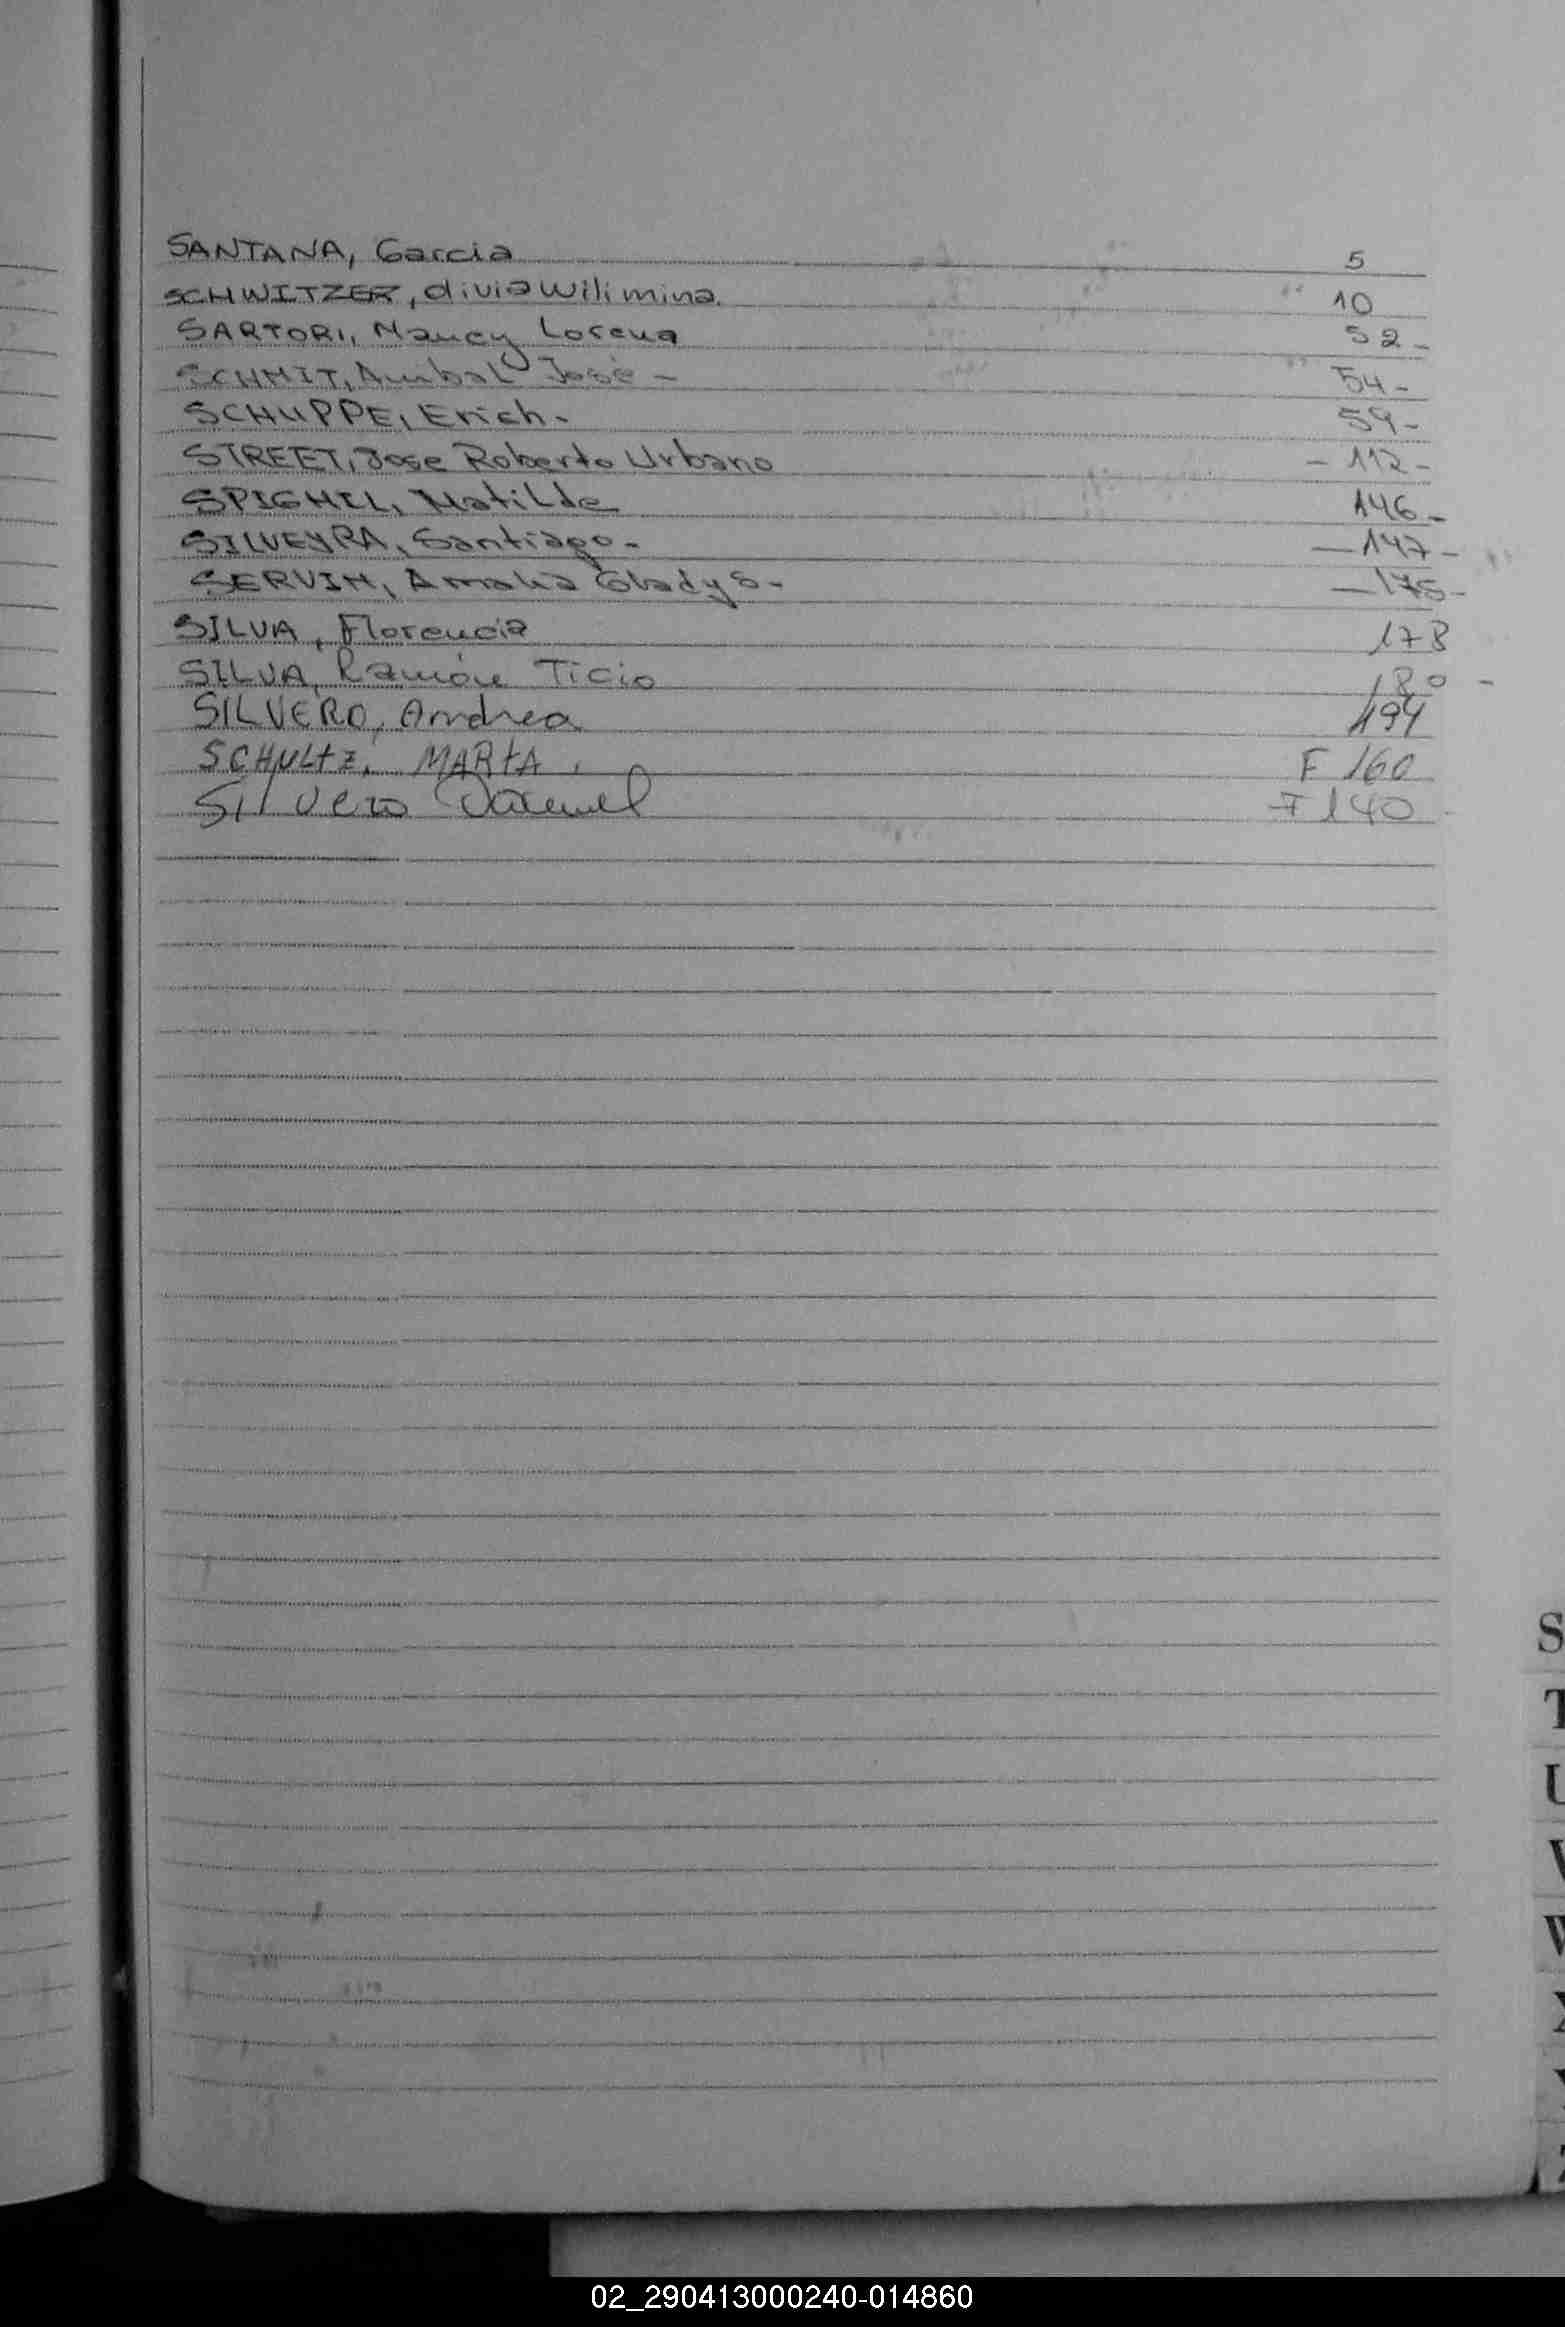 SANTANA, Garcia 5
SCHWITZER, Olivia Wilimina. 10
SARTORI, Nancy Lorena 52-
SCHMIT, Anibal José - 54-
SCHUPPE, Erich. 59-
STREET, Jose Roberto Urbano - 112-
SPIGHIL, Matilde 146-
SILVEYRA, Santiago - 147-
SERVIN, Amalia Gladys - 175-
SILVA, Florencia 178
SILVA, Ramón Ticio 180 -
SILVERO, Andrea 194
SCHULTZ, MARTA. F 160
Silvero Daniel F 140
S
T
U
V
W
02_290413000240-014860